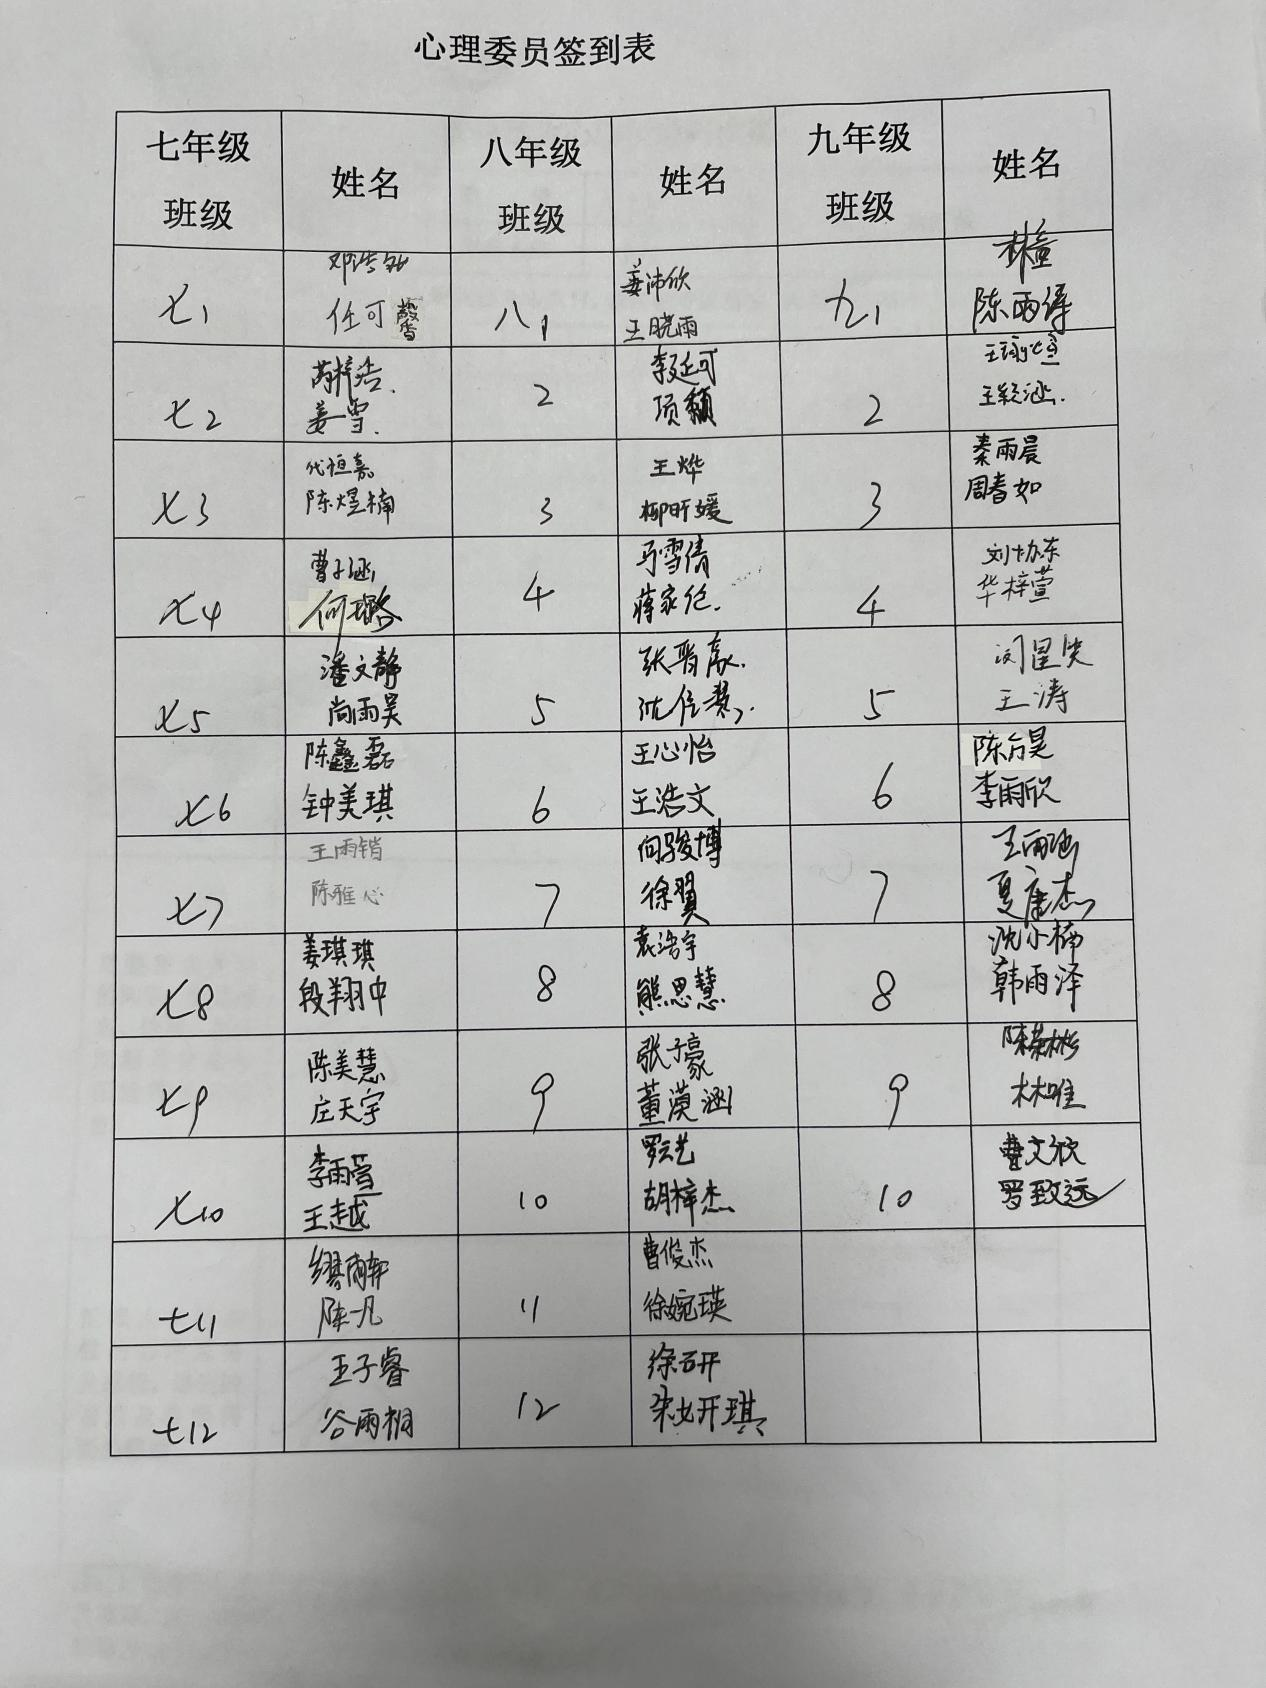 心理委员签到表
七年级班级 姓名 八年级班级 姓名 九年级班级 姓名
七1 任可馨 八1 姜沛欣 王晓雨 九1 林童 陈雨得
七2 芮梓浩. 姜雪. 2 李廷可 项颖 2 王颖涵.
七3 代恒嘉 陈煜楠 3 王烨 柳昕媛 3 秦雨晨 周春如
七4 曹子涵 何璐 4 马雪倩 蒋家纶. 4 刘协东 华梓萱
七5 潘文静 尚雨昊 5 张晋豪. 沈信慧. 5 王涛
七6 陈鑫磊 钟美琪 6 王心怡 王浩文 6 陈方昊 李雨欣
七7 王雨锴 陈雅心 7 向骏博 徐翼 7 王雨涵 夏康杰
七8 姜琪琪 段翔中 8 袁浩宇 熊思慧 8 沈小楠 韩雨泽
七9 陈美慧 庄天宇 9 张子豪 董漠涵 9 陈荣彬 林唯
七10 李雨萱 王越 10 罗云艺 胡梓杰 10 曹文欣 罗致远
七11 缪雨轩 陈一凡 11 曹俊杰 徐婉瑛
七12 王子睿 谷雨桐 12 徐研 梁妍琪